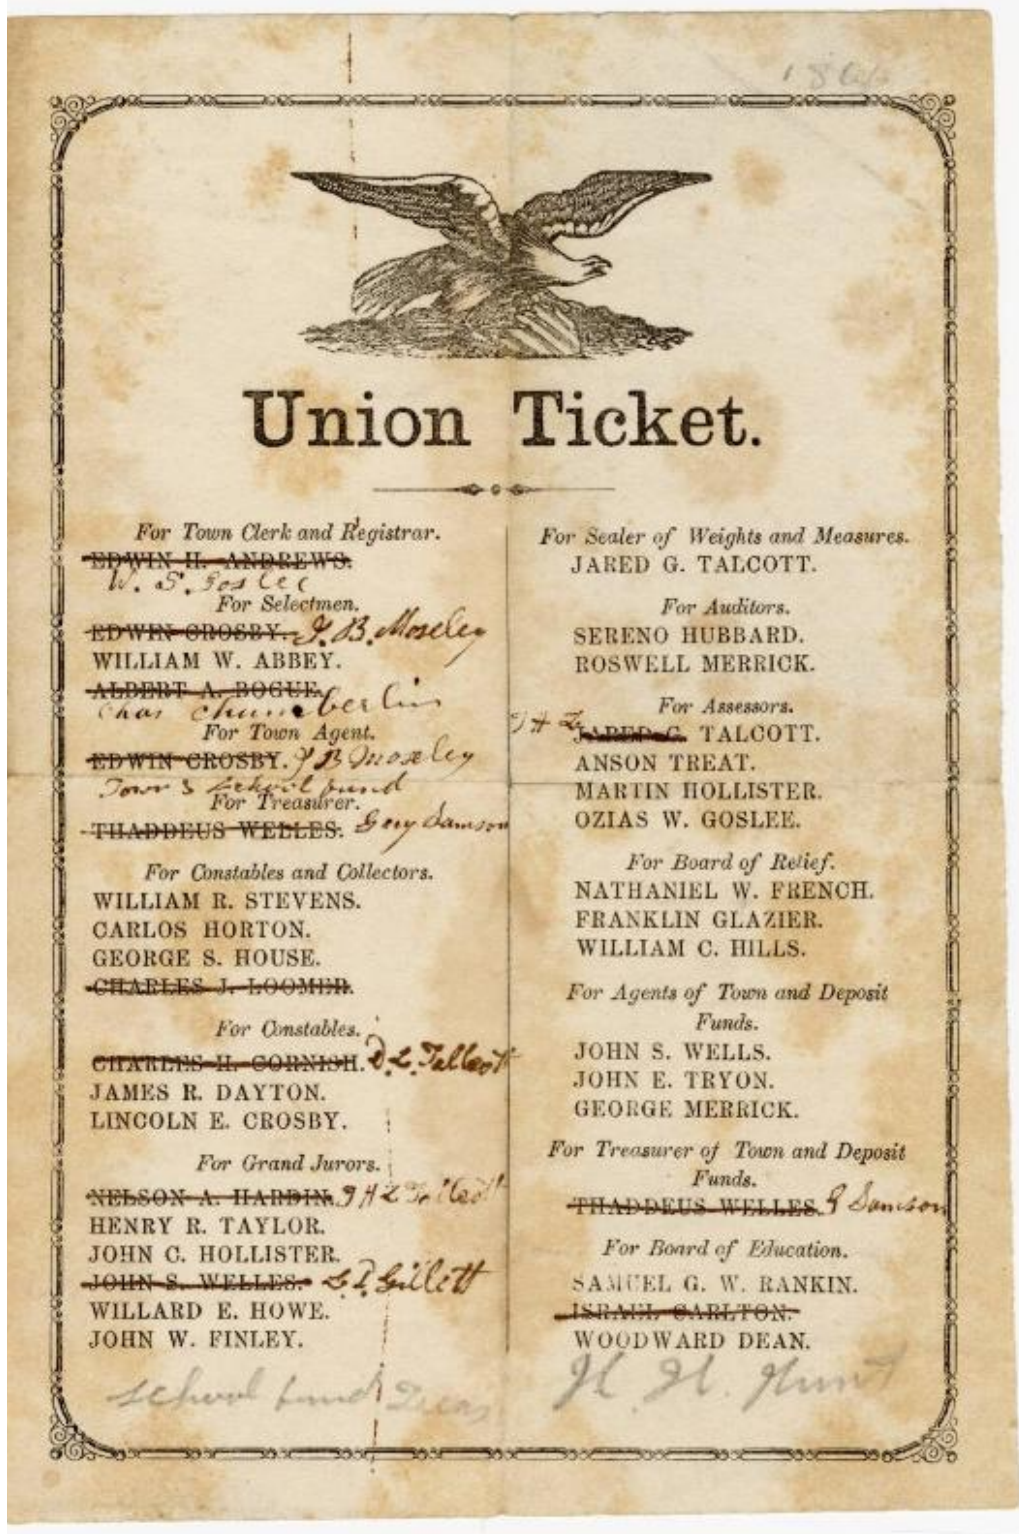 Union Ticket.
For Town Clerk and Registrar.
EDWIN H. ANDREWS.
W. S. Goslee
For Selectmen.
EDWIN CROSBY. J. B. Moseley
WILLIAM W. ABBEY.
ALBERT A. BOGUE.
Chas Chamberlin
For Town Agent.
EDWIN CROSBY. J B Moseley
Town & School fund
For Treasurer.
THADDEUS WELLES. Samson
For Constables and Collectors.
WILLIAM R. STEVENS.
CARLOS HORTON.
GEORGE S. HOUSE.
CHARLES J. LOOMER.
For Constables.
CHARLES H. CORNISH. D. L. Talcott
JAMES R. DAYTON.
LINCOLN E. CROSBY.
For Grand Jurors.
NELSON A. HARDIN. Talcott
HENRY R. TAYLOR.
JOHN C. HOLLISTER.
JOHN S. WELLES. Gillett
WILLARD E. HOWE.
JOHN W. FINLEY.
School fund Treas
For Sealer of Weights and Measures.
JARED G. TALCOTT.
For Auditors.
SERENO HUBBARD.
ROSWELL MERRICK.
For Assessors.
JARED G. TALCOTT.
ANSON TREAT.
MARTIN HOLLISTER.
OZIAS W. GOSLEE.
For Board of Relief.
NATHANIEL W. FRENCH.
FRANKLIN GLAZIER.
WILLIAM C. HILLS.
For Agents of Town and Deposit
Funds.
JOHN S. WELLS.
JOHN E. TRYON.
GEORGE MERRICK.
For Treasurer of Town and Deposit
Funds.
THADDEUS WELLES. G Samson
For Board of Education.
SAMUEL G. W. RANKIN.
ISRAEL CARLTON.
WOODWARD DEAN.
H. H. Hunt